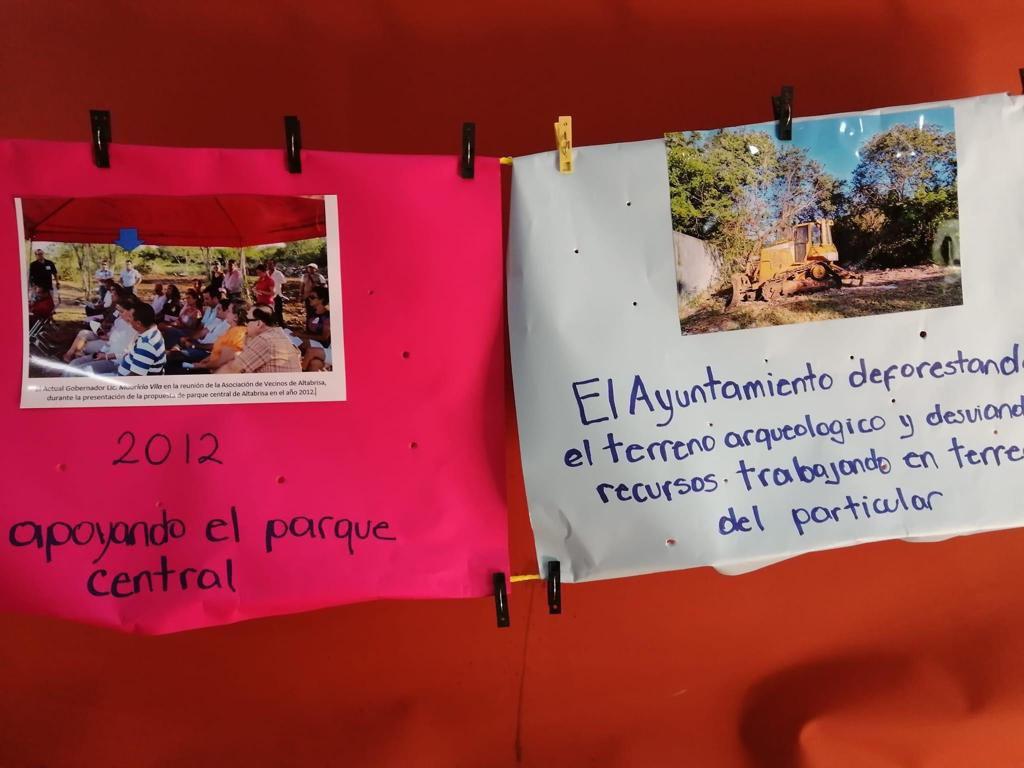 El Actual Gobernador Lic. Mauricio Vila en la reunión de la Asociación de Vecinos de Altabrisa,
durante la presentación de la propuesta de parque central de Altabrisa en el año 2012.
2012
apoyando el parque
central
El Ayuntamiento deforestand
el terreno arqueologico y desviand
recursos. trabajando en terre
del particular